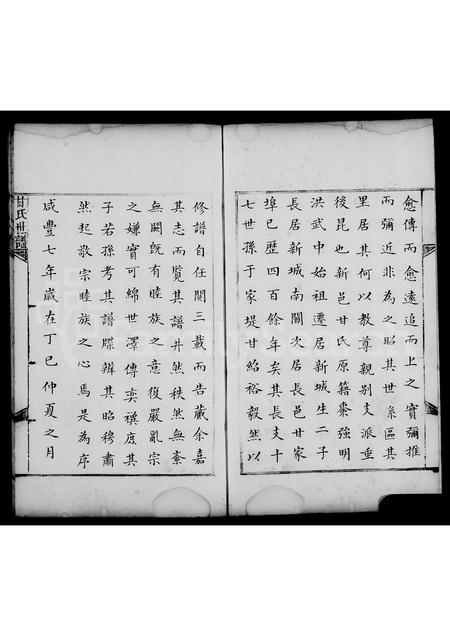 愈傳而愈遠追而上之實彌推
而彌近非為之昭其世系區其
里居其何以教尊親别支派垂
後昆也新邑甘氏原籍棗強明
洪武中始祖遷居新城生二子
長居新城南關次居長邑甘家
埠已歷四百餘年矣其長支十
七世孫于家堤甘紹裕毅然以
修譜自任閱三載而告蕆余嘉
其志而覽其譜井然秩然無紊
無闕既有睦族之意復嚴亂宗
之嫌實可綿世澤傳奕禩庶其
子若孫考其譜牒辨其昭穆肅
然起敬宗睦族之心焉是為序
咸豐七年歲在丁巳仲夏之月
甘氏世譜